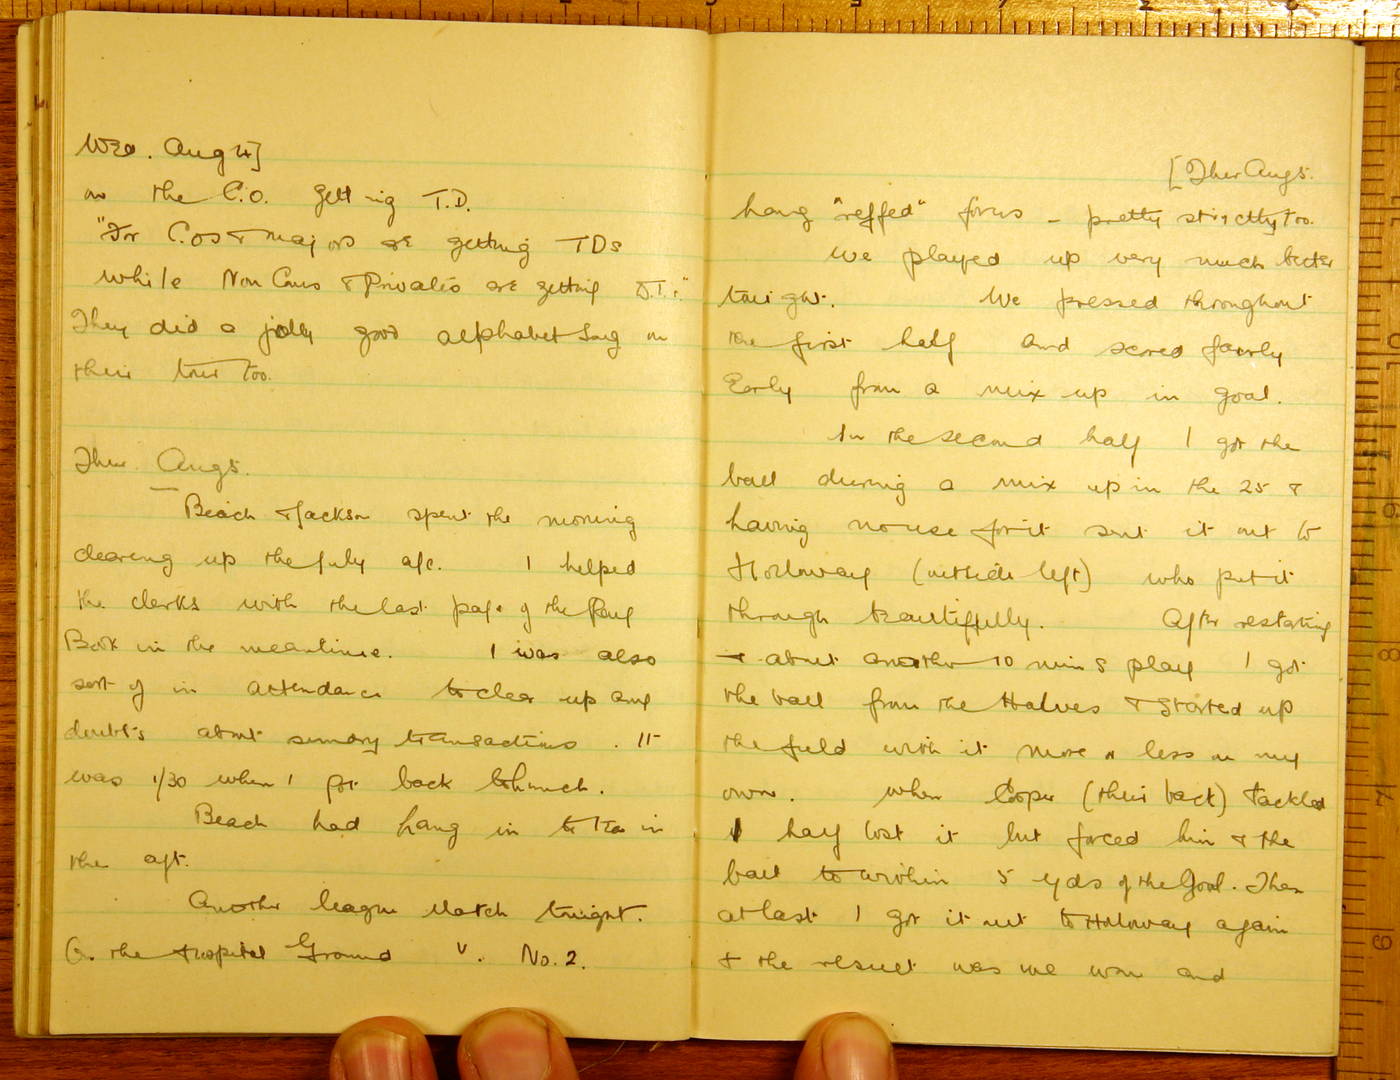 Wed. Aug 4]
on the C.O. getting T.D.
"For Cos & majors are getting TDs
while Non Coms & Privates are getting D.T.s."
They did a jolly good alphabet song on
their tour too.
Thur. Aug 5.
Beach & Jackson spent the morning
clearing up the July a/c. I helped
the clerks with the last page of the Pay
Book in the meantime. I was also
sort of in attendance to clear up any
doubts about summary transactions. It
was 1/30 when I got back to lunch.
Beach had Lang in to tea in
the aft.
Another league Match tonight.
On the Hospital Ground v. No. 2.
[Thur Aug 5.
Lang "reffed" for us - pretty strictly too.
We played up very much better
tonight. We pressed throughout
the first half and scored fairly
Early from a mix up in goal.
In the second half I got the
ball during a mix up in the 25 &
having no use for it sent it out to
Holloway (outside left) who put it
through beautifully. After restarting
& about another 10 mins play I got
the ball from the Halves & started up
the field with it more or less on my
own. When Cooper (their back) tackled
I half lost it but forced him & the
ball to within 5 yds of the Goal. Then
at last I got it out to Holloway again
& the result was we won and